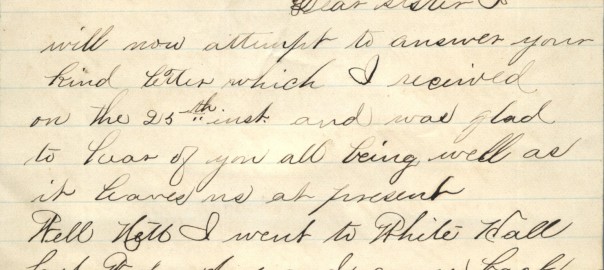 Dear Sister I
will now attempt to answer your
kind letter which I received
on the 25th inst. and was glad
to hear of you all being well as
it leaves us at present
Well I went to White Hall
last